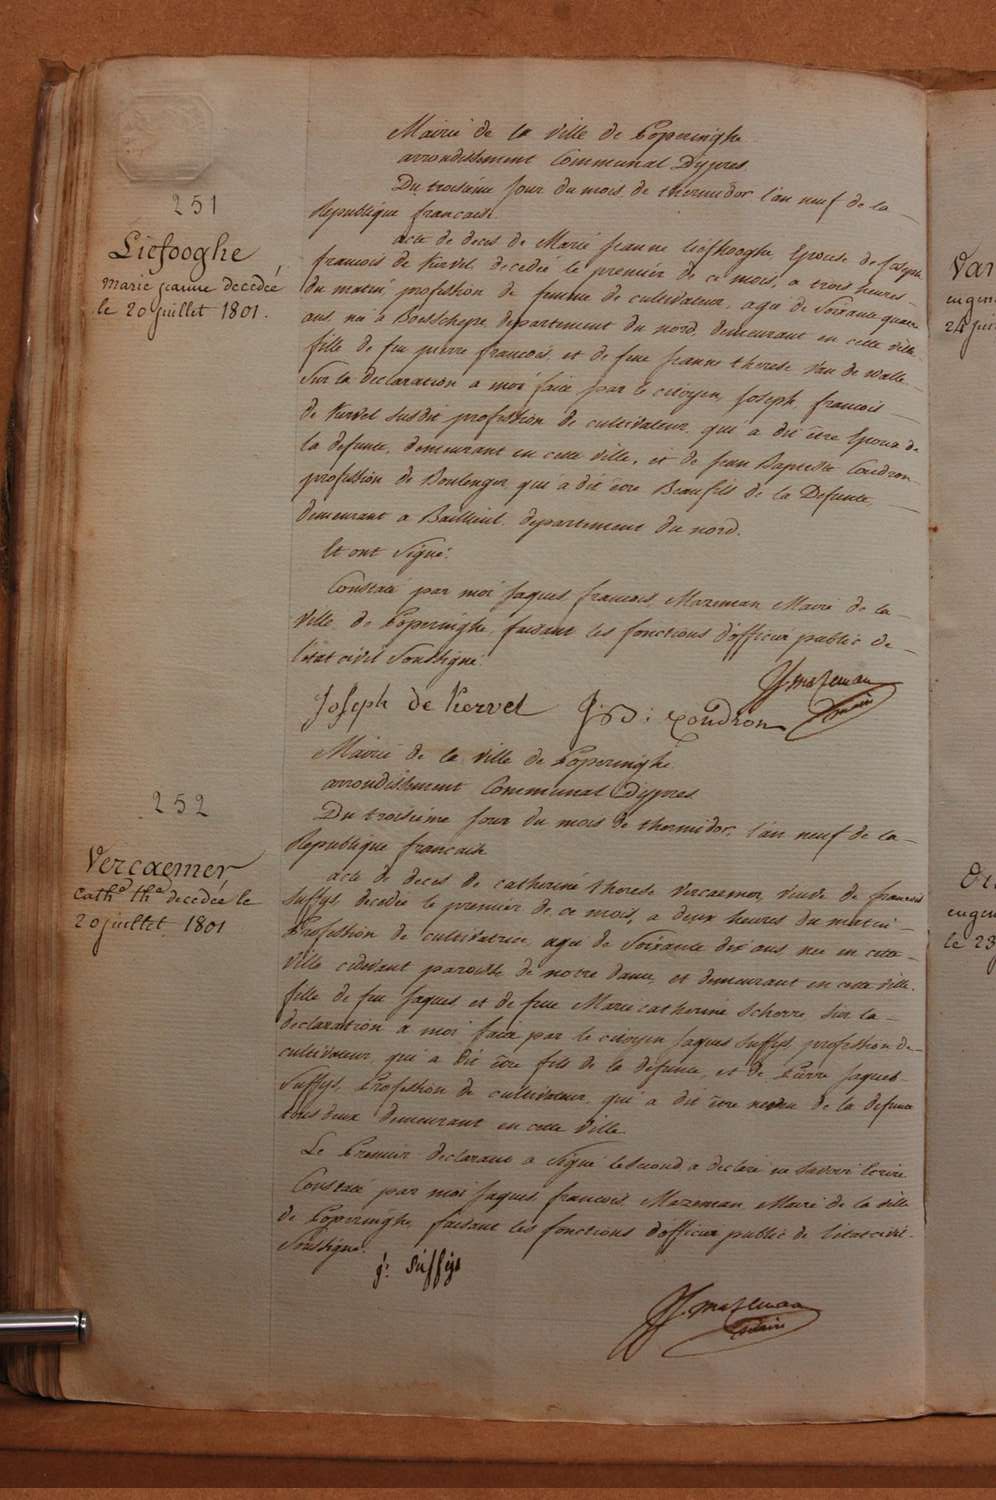 251
Liefooghe
marie jeanne decedée
le 20 juillet 1801.
Mairie de la ville de Poperinghe
arrondissement Communal D'ypres
Du troisième jour du mois de thermidor l'an neuf de la
Republique francaise.
acte de deces de Marie Jeanne Liefhooghe Epouse de Joseph
francois de Kervel decedée le premier de ce mois, a trois heures
du matin, profession de femme de cultivateur, agée de Soixante quatre
ans, née à Boesschepe, departement du nord, demeurant en cette ville,
fille de feu pierre francois, et de feue Jeanne therese Van de walle
Sur la declaration a moi faite par le citoyen Joseph francois
de Kervel susdit profession de cultivateur, qui a dit être Epoux de
la defunte, demeurant en cette ville, et de Jean Baptiste Coudron
profession de Boulenger qui a dit être Beaufils de la Defunte,
demeurant a Bailleul, departement du nord.
Et ont signé.
Constaté par moi Jaques francois Mazeman Maire de la
ville de Poperinghe, faisant les fonctions d'officier public de
l'etat civil Soussigné
JJ. Mazeman
maire
Joseph de Kervel J: B: Coudron
252
Vercaemer
Cathe the decedée le
20 juillet 1801
Mairie de la ville de Poperinghe
arrondissement Communal D'ypres
Du troisième jour du mois de thermidor, l'an neuf de la
Republique francaise
acte de deces de catherine therese Vercaemer, veuve de francois
Suffys, decedée le premier de ce mois, a deux heures du matin
Profession de cultivatrice, agée de Soixante dix ans, née en cette
ville cidevant paroisse de notre dame, et demeurant en cette ville.
fille de feu Jaques et de feue Marie catherine Schorre, Sur la
declaration a moi faite par le citoyen Jaques Suffys profession de
cultivateur, qui a dit être fils de la defunte, et de Pierre Jaques
Suffys, Profession de cultivateur, qui a dit être neveu de la defunte
tous deux demeurant en cette ville.
Le Premier declarant a signé le second a declaré ne savoir Ecrire
Constaté par moi Jaques francois Mazeman Maire de la ville
de Poperinghe, faisant les fonctions d'officier public de l'etat civil
Soussigné.
j: Suffys
JJ. Mazeman
maire
Van
eugen
24 jui
eugen
le 23